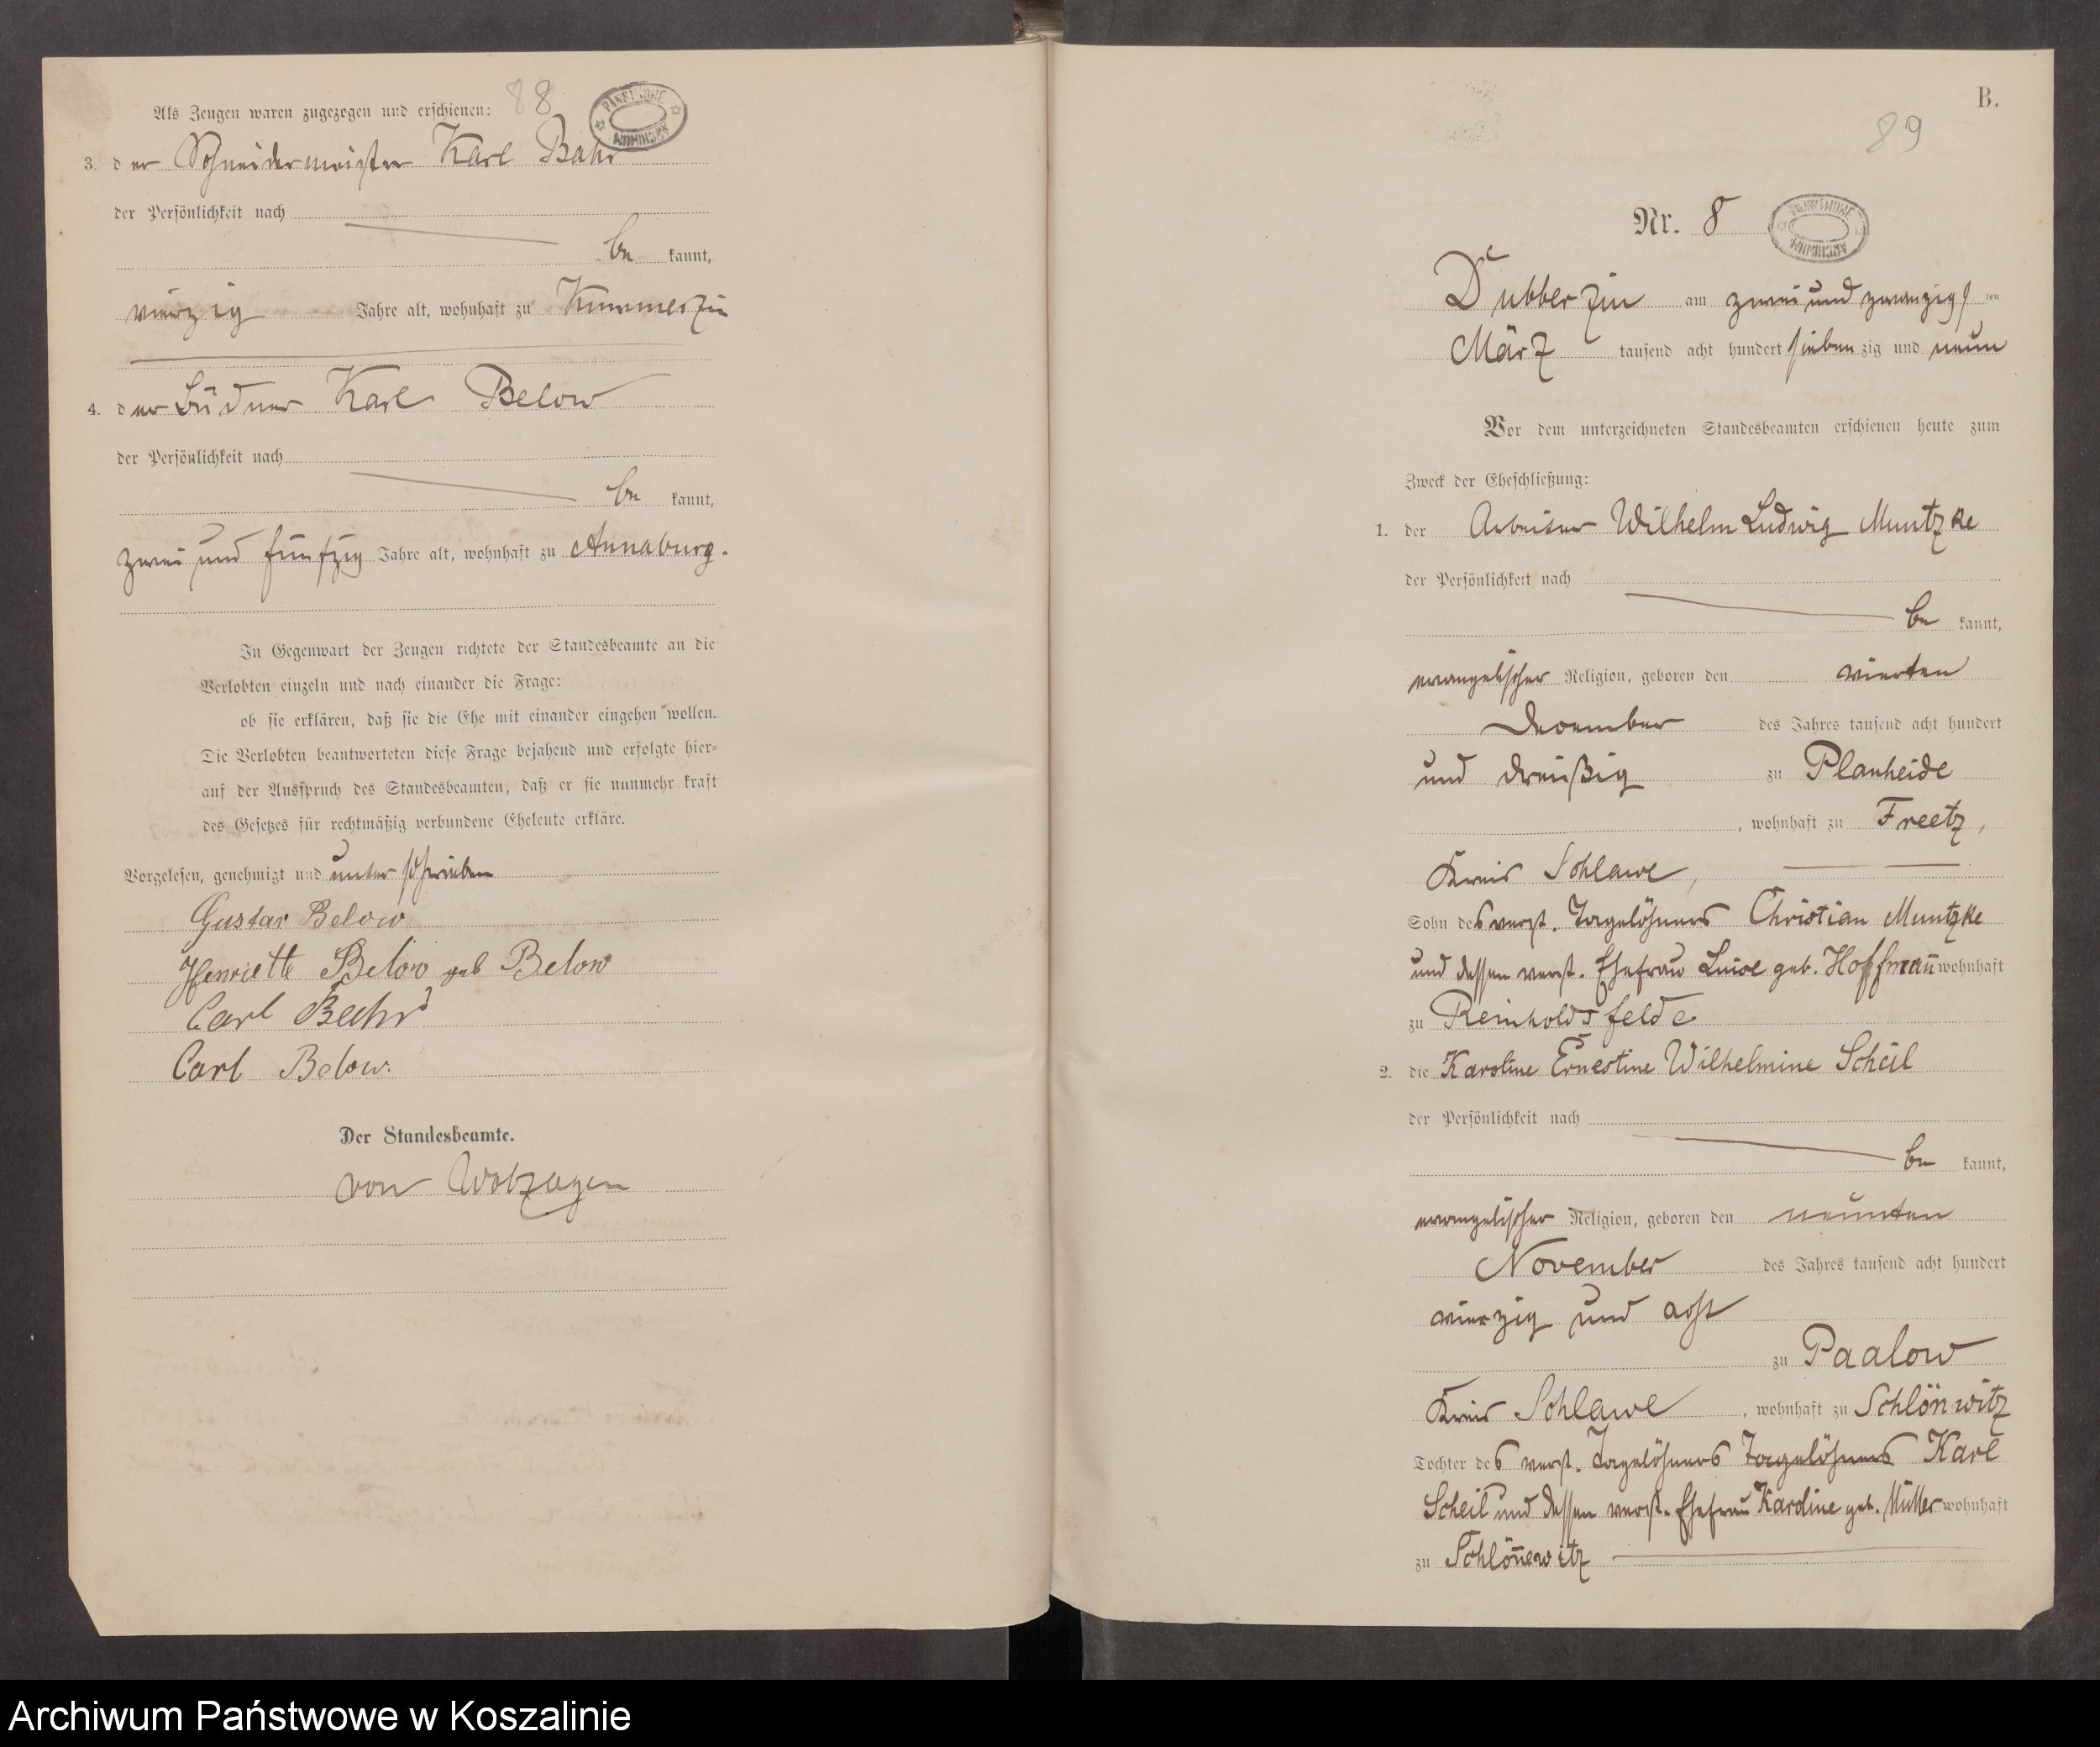 Als Zeugen waren zugezogen und erschienen:
88
PAŃSTWOWE ARCHIWUM
3. der Schneidermeister Karl Bahr
der Persönlichkeit nach
be kannt,
vierzig Jahre alt, wohnhaft zu Kummerzin
4. der Büdner Karl Below
der Persönlichkeit nach
be kannt,
zwei und fünfzig Jahre alt, wohnhaft zu Annaburg.
In Gegenwart der Zeugen richtete der Standesbeamte an die
Verlobten einzeln und nach einander die Frage:
ob sie erklären, daß sie die Ehe mit einander eingehen wollen.
Die Verlobten beantworteten diese Frage bejahend und erfolgte hier-
auf der Ausspruch des Standesbeamten, daß er sie nunmehr kraft
des Gesetzes für rechtmäßig verbundene Eheleute erkläre.
Vorgelesen, genehmigt und unterschrieben
Gustav Below
Henriette Below geb Below
Carl Bahr
Carl Below.
Der Standesbeamte.
von
B.
89
Nr. 8
PAŃSTWOWE ARCHIWUM
Dubberzin am zwei und zwanzigsten
März tausend acht hundert siebenzig und neun
Vor dem unterzeichneten Standesbeamten erschienen heute zum
Zweck der Eheschließung:
1. der Arbeiter Wilhelm Ludwig Muntzke
der Persönlichkeit nach
be kannt,
evangelischer Religion, geboren den vierten
December des Jahres tausend acht hundert
und dreißig zu Planheide
, wohnhaft zu Freetz,
Kreis Schlawe,
Sohn des verst. Tagelöhners Christian Muntzke
und dessen verst. Ehefrau Luise geb. Hoffmañ wohnhaft
zu Reinholdsfelde
2. die Karoline Ernestine Wilhelmine Scheil
der Persönlichkeit nach
be kannt,
evangelischer Religion, geboren den neunten
November des Jahres tausend acht hundert
vierzig und acht
zu Paalow
Kreis Schlawe, wohnhaft zu Schlönwitz
Tochter des verst. Tagelöhners Tagelöhners Karl
Scheil und dessen verst. Ehefrau Karoline geb. Müller wohnhaft
zu Schlöñewitz
Archiwum Państwowe w Koszalinie